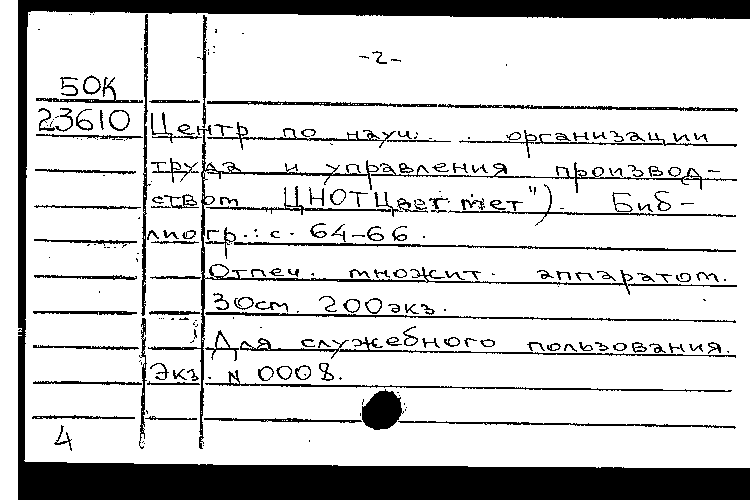 -2-
50К
23610 Центр по науч. организации
труда и управления производ-
ством ЦНОТЦветмет"). Биб-
лиогр.: с. 64-66.
Отпеч. множит. аппаратом.
30см. 200экз.
Для служебного пользования.
Экз. N 0008.
4